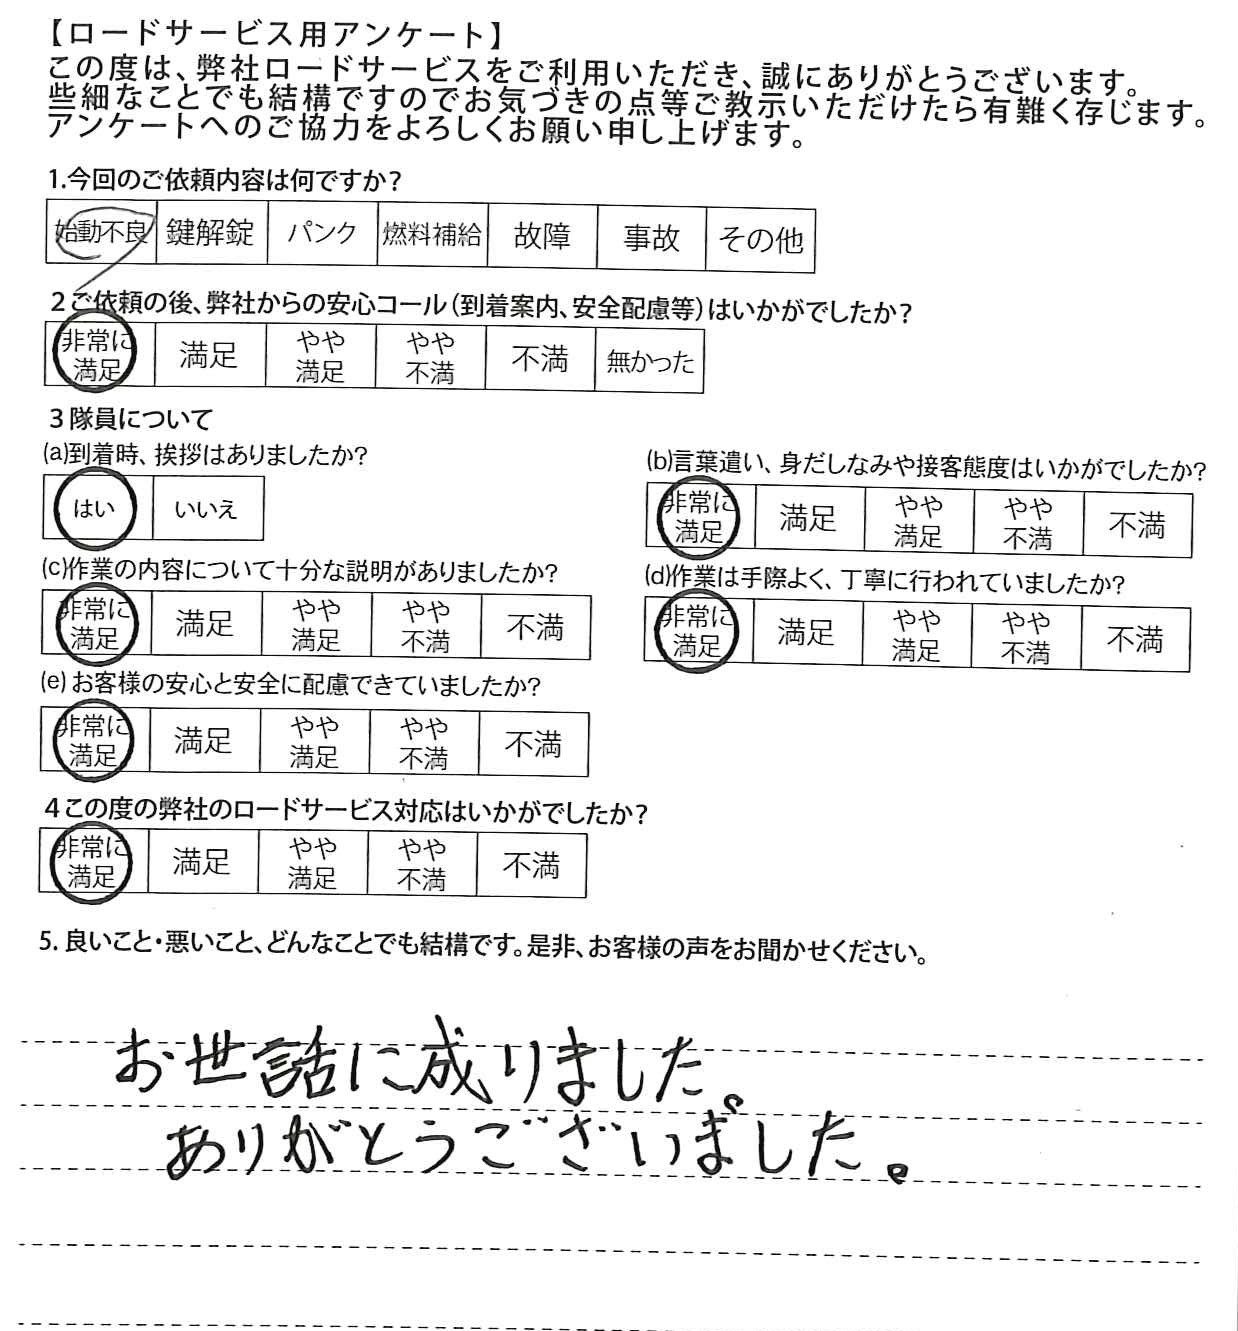 【ロードサービス用アンケート】
この度は、弊社ロードサービスをご利用いただき、誠にありがとうございます。
些細なことでも結構ですのでお気づきの点等ご教示いただけたら有難く存じます。
アンケートへのご協力をよろしくお願い申し上げます。
1.今回のご依頼内容は何ですか?
始動不良 鍵解錠 パンク 燃料補給 故障 事故 その他
2ご依頼の後、弊社からの安心コール(到着案内、安全配慮等)はいかがでしたか?
非常に満足 満足 やや満足 やや不満 不満 無かった
3隊員について
(a)到着時、挨拶はありましたか?
はい いいえ
(b)言葉遣い、身だしなみや接客態度はいかがでしたか?
非常に満足 満足 やや満足 やや不満 不満
(c)作業の内容について十分な説明がありましたか?
非常に満足 満足 やや満足 やや不満 不満
(d)作業は手際よく、丁寧に行われていましたか?
非常に満足 満足 やや満足 やや不満 不満
(e)お客様の安心と安全に配慮できていましたか?
非常に満足 満足 やや満足 やや不満 不満
4この度の弊社のロードサービス対応はいかがでしたか?
非常に満足 満足 やや満足 やや不満 不満
5. 良いこと・悪いこと、どんなことでも結構です。是非、お客様の声をお聞かせください。
お世話に成りました。
ありがとうございました。